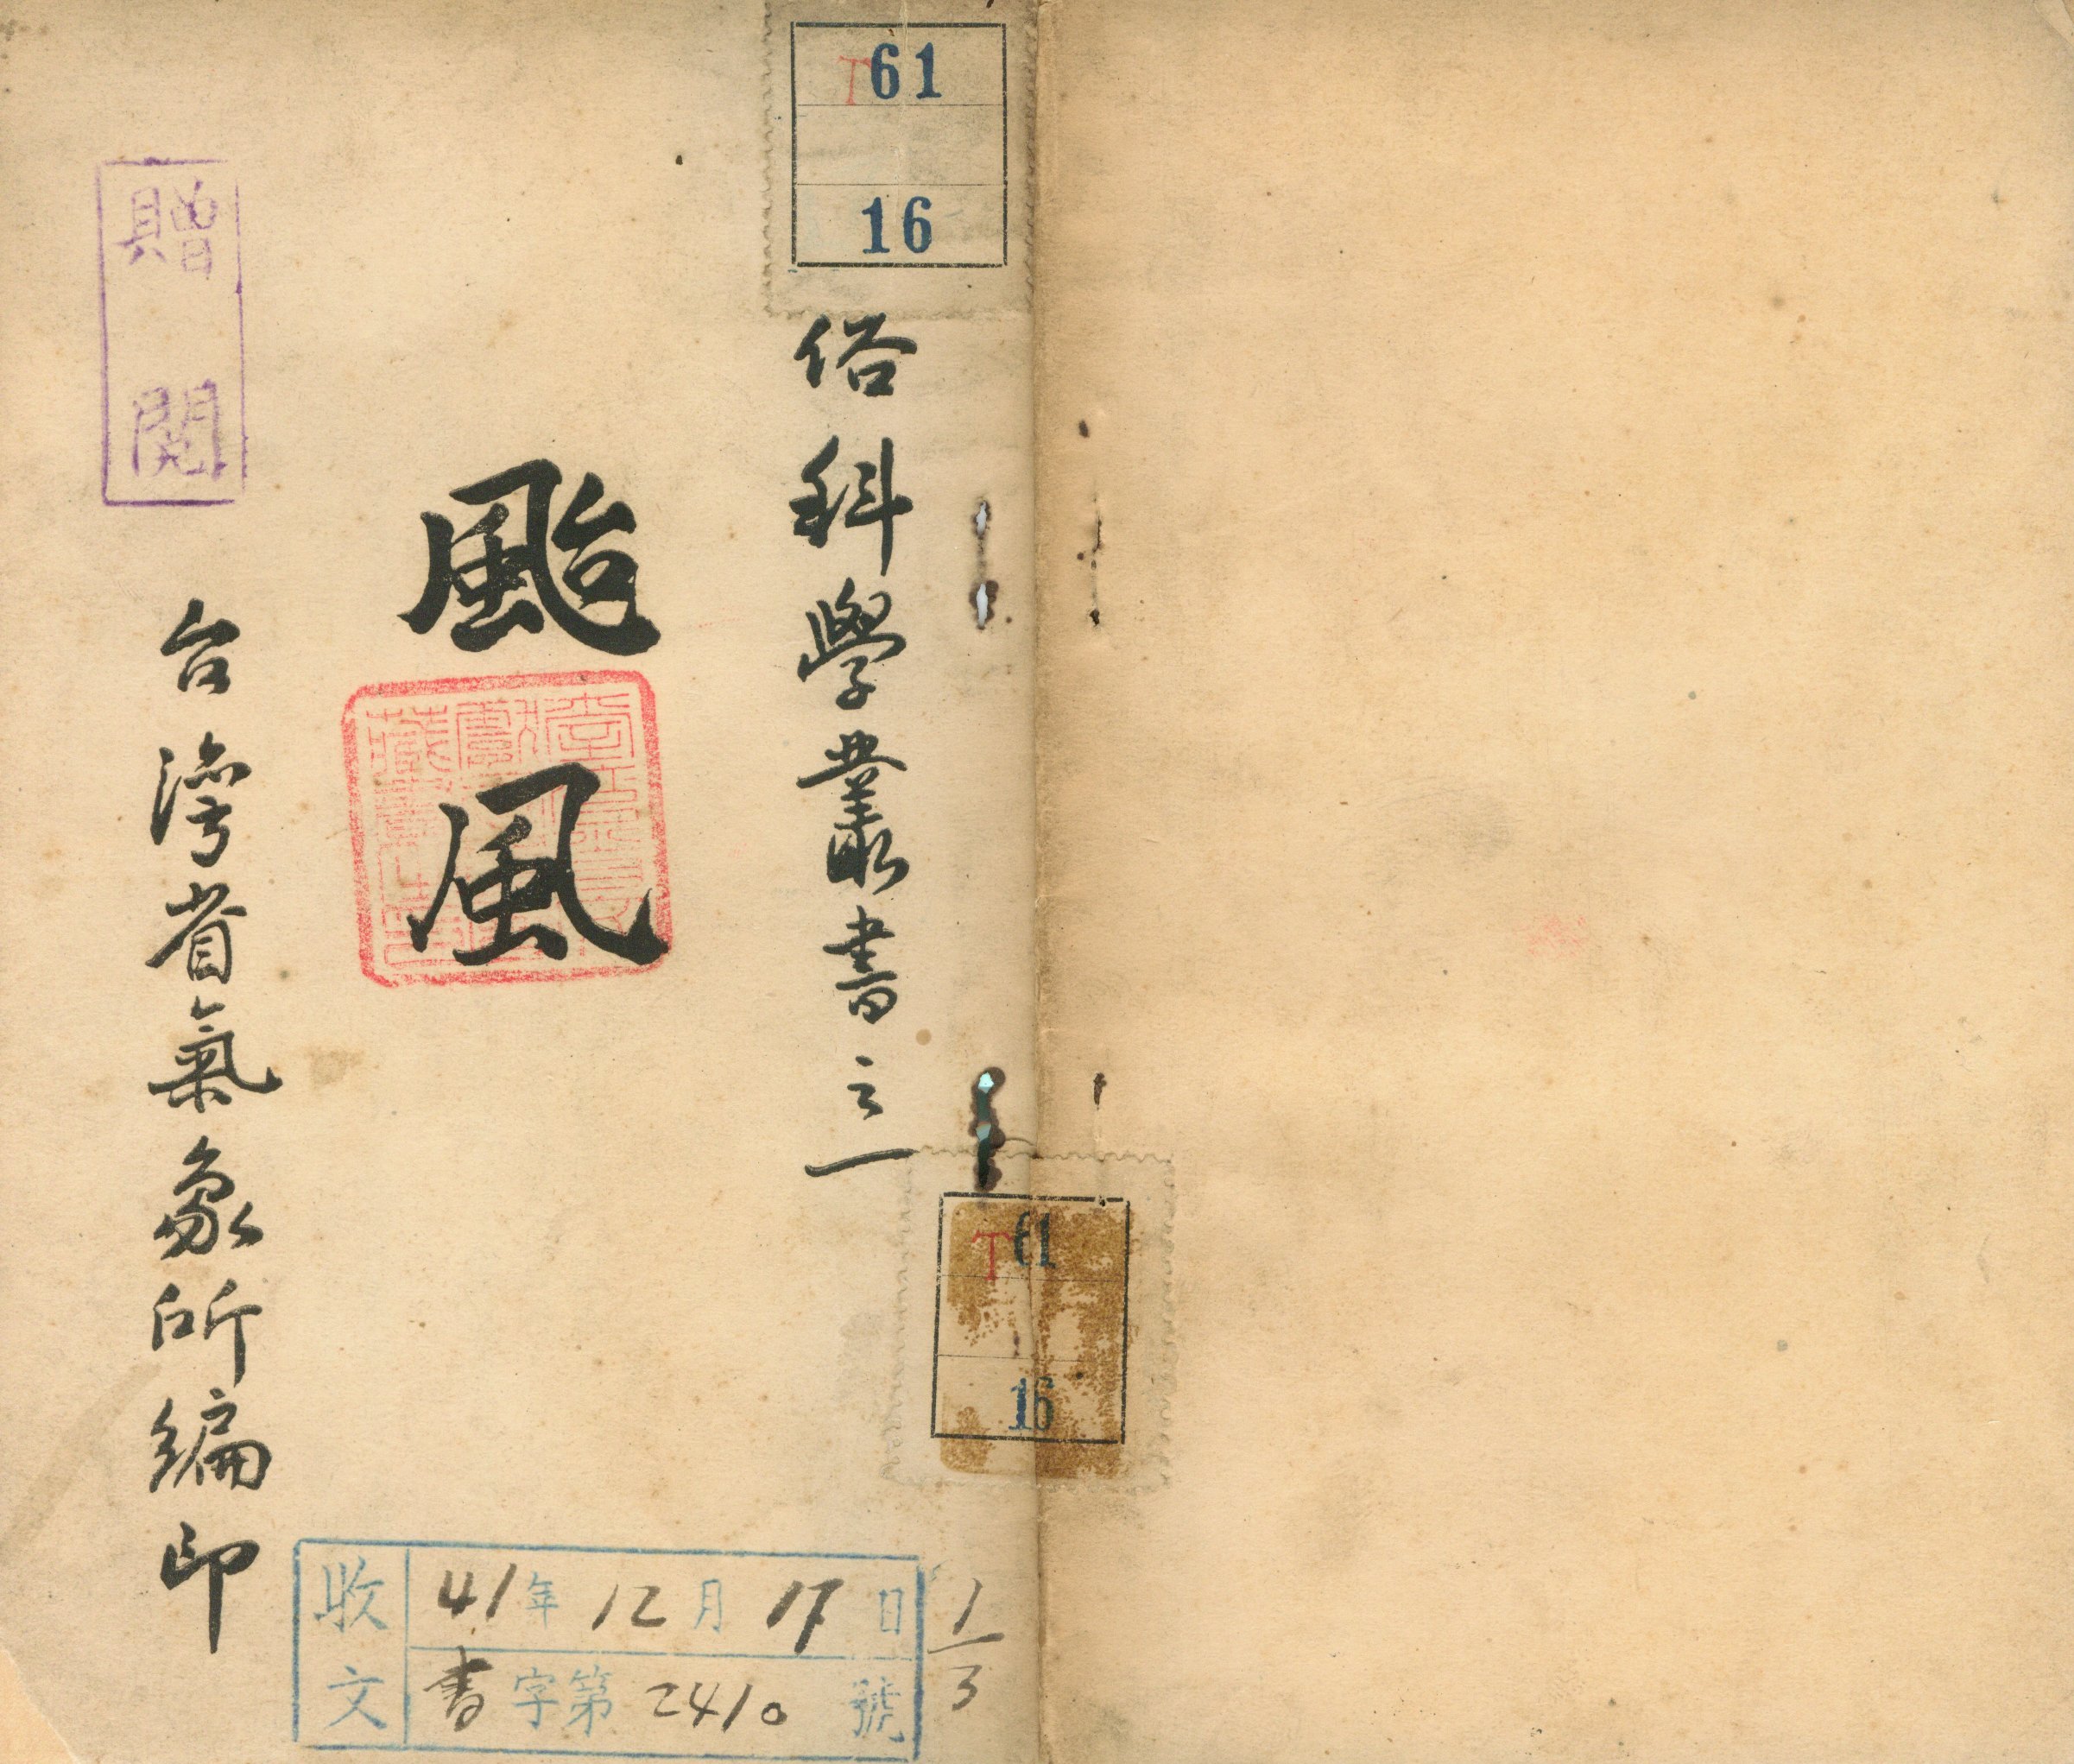 T61
16
俗科學叢書之一
颱風
台灣省氣象所編印
贈閱
T61
16
收文
41年12月17日
書字第2410號
1/3